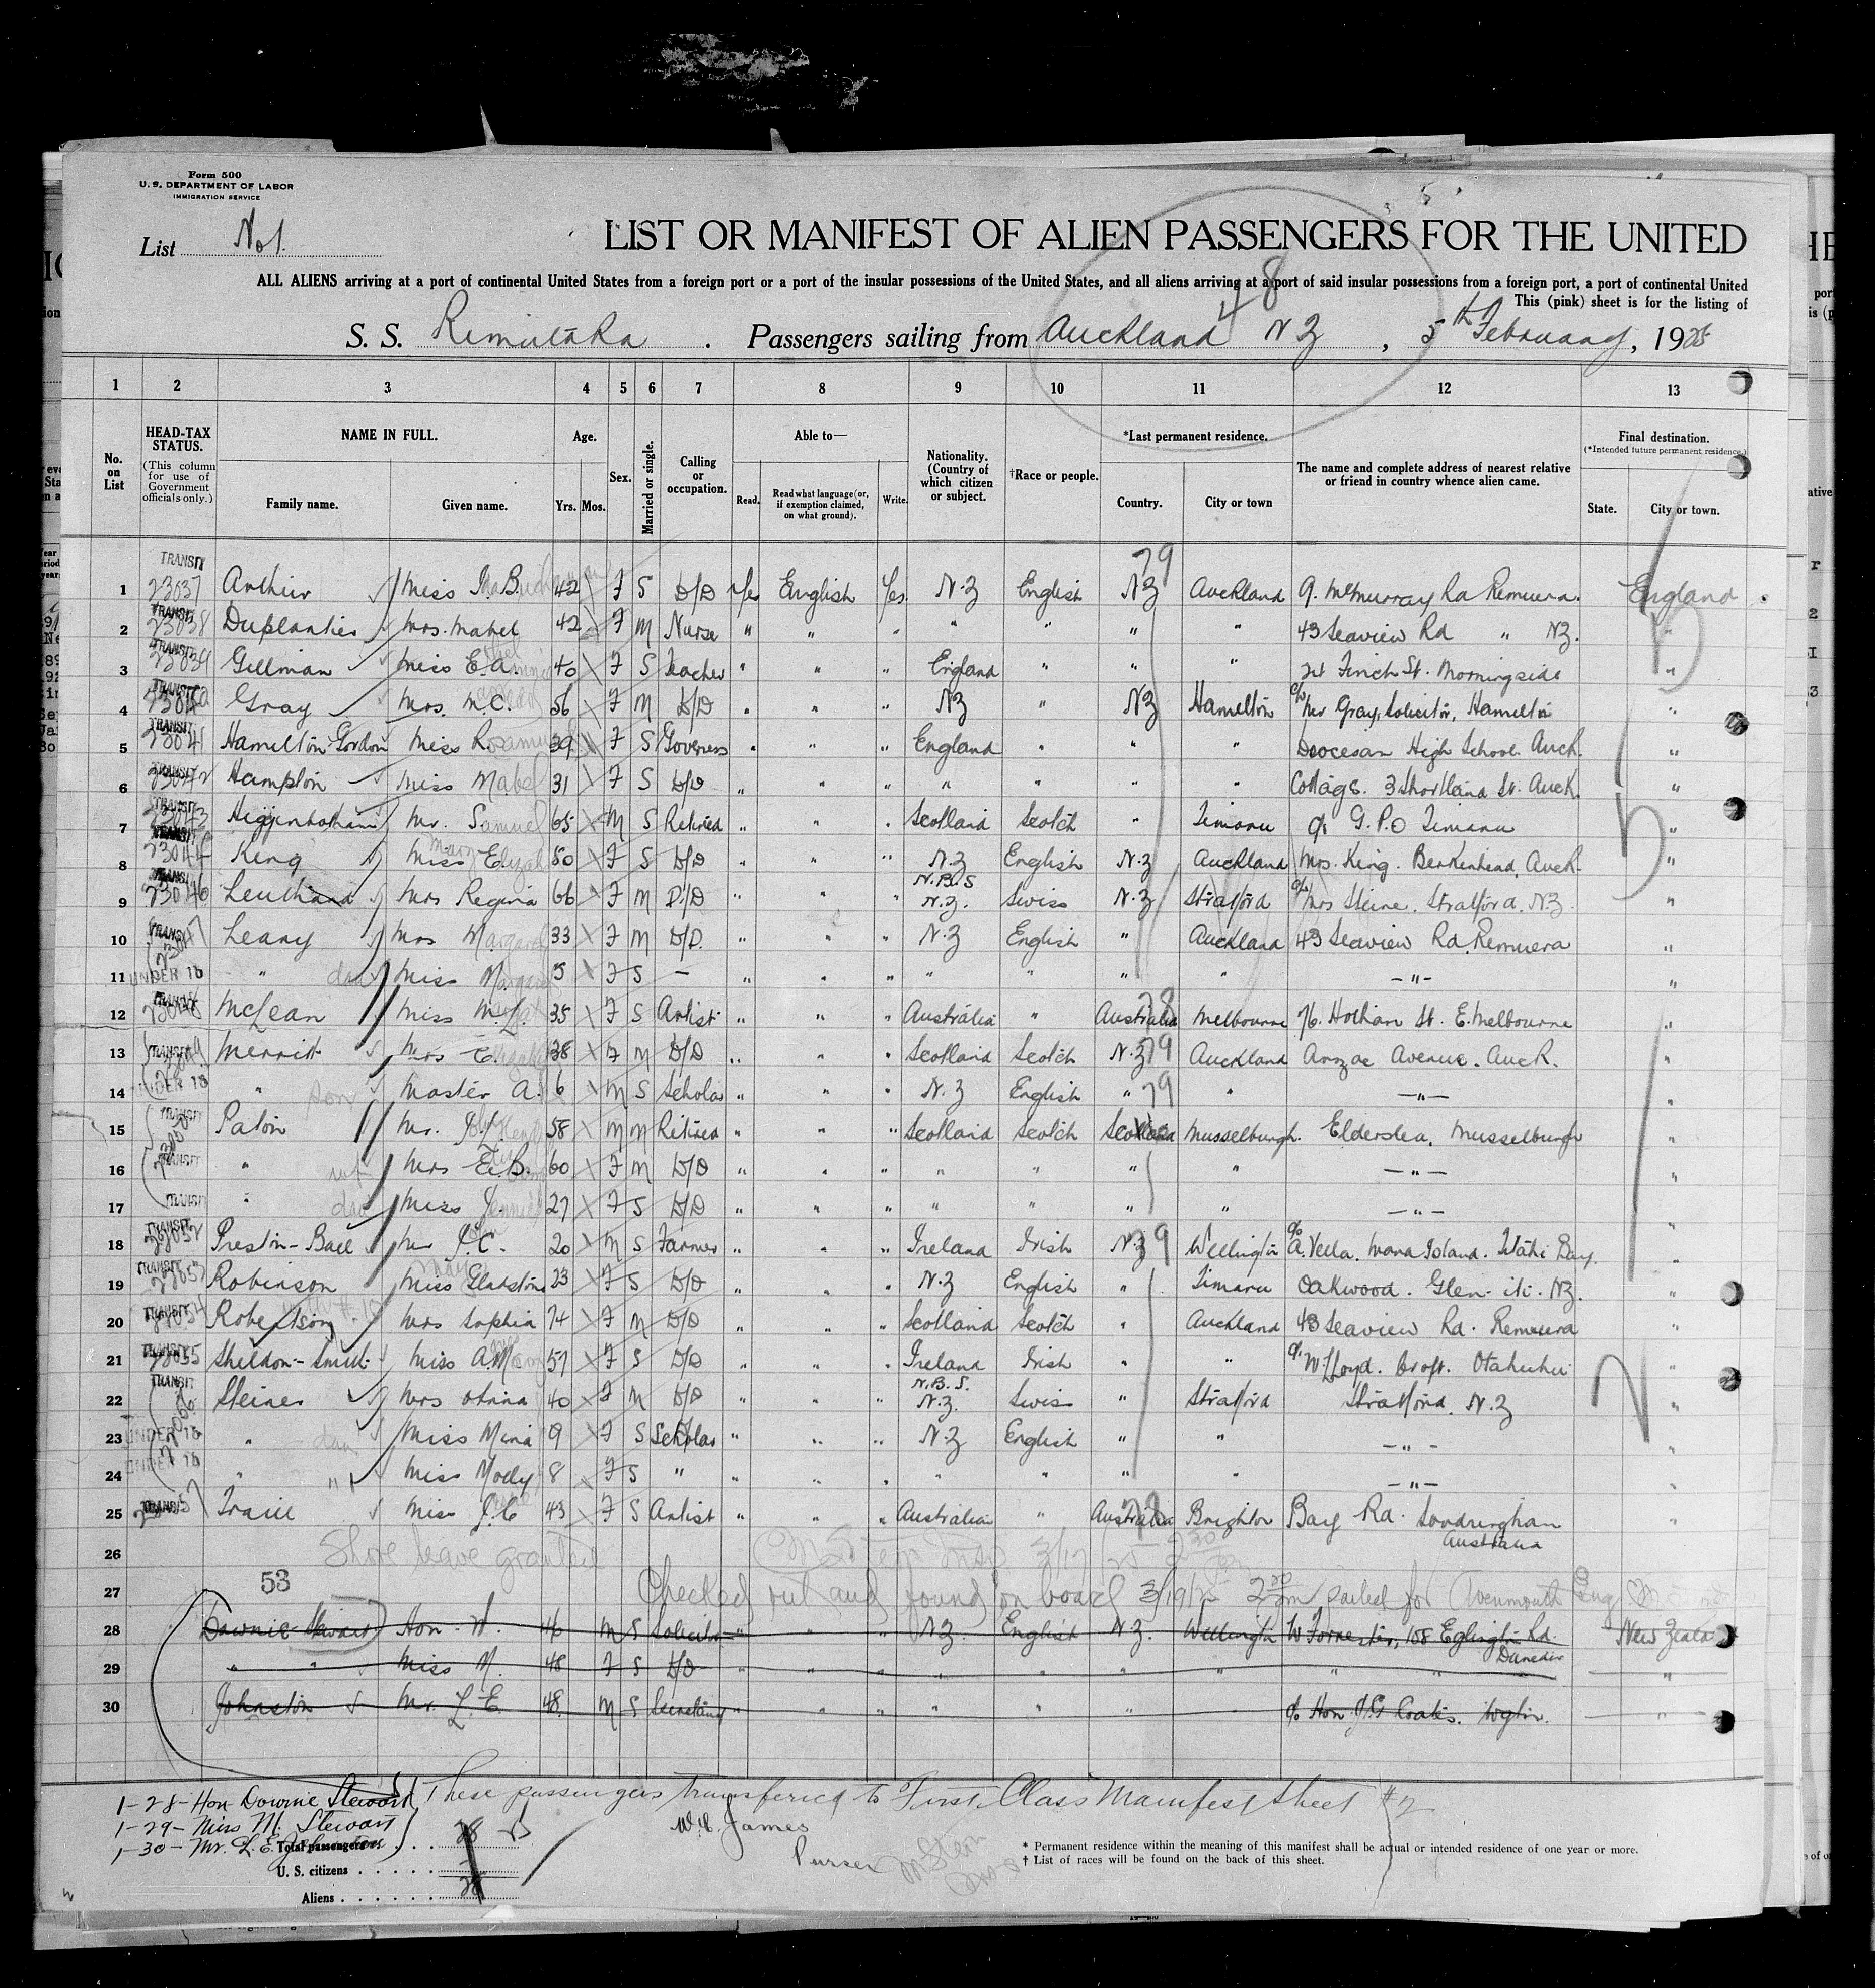 Form 500
U. S. DEPARTMENT OF LABOR
IMMIGRATION SERVICE
List No 1.
LIST OR MANIFEST OF ALIEN PASSENGERS FOR THE UNITED
ALL ALIENS arriving at a port of continental United States from a foreign port or a port of the insular possessions of the United States, and all aliens arriving at a port of said insular possessions from a foreign port, a port of continental United
This (pink) sheet is for the listing of
48
S. S. Rimutaka . Passengers sailing from Auckland NZ , 5th February, 1925
1 2 3 4 5 6 7 8 9 10 11 12 13
No. on List
HEAD-TAX STATUS. (This column for use of Government officials only.)
NAME IN FULL. Family name. Given name.
Age. Yrs. Mos.
Sex.
Married or single.
Calling or occupation.
Able to— Read. Read what language (or, if exemption claimed, on what ground). Write.
Nationality. (Country of which citizen or subject.
†Race or people.
*Last permanent residence. Country. City or town
The name and complete address of nearest relative or friend in country whence alien came.
Final destination. (*Intended future permanent residence.) State. City or town.
1 TRANSIT 23037 Arthur Miss 42 F S D/D Yes English Yes N.Z English NZ 79 Auckland 9. McMurray Rd Remuera. England
2 TRANSIT 23038 Duplantier Mrs. Mabel 42 F M Nurse " " " " " " " 43 Seaview Rd " NZ. "
3 TRANSIT 23039 Gillman Miss E.A. 40 F S Teacher " " " England " " " 24 Finch St. Morningside "
4 TRANSIT Gray Mrs. M.C. 56 F M D/D " " NZ " NZ Hamilton c/o Mr Gray, Solicitor, Hamilton "
5 TRANSIT 23041 Hamilton-Gordon Miss 39 F S Governess " " " England " " " Diocesan High School. Auck. "
6 TRANSIT 23042 Hampton Miss Mabel 31 F S D/D " " " " " " " 3 Shortland St. Auck. "
7 TRANSIT 23043 Higginbotham Mr. Samuel 65 M S Retired " " " Scotland Scotch " Timaru c/o G.P.O Timaru "
8 TRANSIT 23044 King Miss 50 F S D/D " " " N.Z English N.Z Auckland Mrs. King. Berkenhead, Auck. "
9 TRANSIT 23046 Miss Regina 66 F M D/D " " " N.B.S N.Z. Swiss N.Z Stratford c/o Mrs Steine. Stratford. N.Z. "
10 TRANSIT 23047 Leany Mrs Margaret 33 F M D/D. " " " N.Z English " Auckland 43 Seaview Rd. Remuera "
11 UNDER 16 " dau Miss 5 F S — " " " " " " " —"— "
12 TRANSIT 23048 McLean Miss M.L. 35 F S Artist " " " Australia " Australia 78 Melbourne 76. Hotham St. E. Melbourne "
13 TRANSIT Merritt Mrs 38 F M D/D " " " Scotland Scotch N.Z 79 Auckland Anzac Avenue. Auck. "
14 UNDER 16 " son Master A. 6 M S Scholar " " " N.Z English " 79 " —"— "
15 TRANSIT Paton Mr. 58 M M Retired " " " Scotland Scotch Scotland Musselburgh. Elderslea, Musselburgh "
16 TRANSIT " wf Mrs E.B. 60 F M D/D " " " " " " " —"— "
17 TRANSIT " dau Miss 27 F S D/D " " " " " " " —"— "
18 TRANSIT 23052 Preston-Ball Mr J.C. 20 M S Farmer " " " Ireland Irish N.Z 9 Wellington c/o A. Vella. Mana Island. "
19 TRANSIT 23053 Robinson Miss Gladstone 23 F S D/D " " " N.Z English " Timaru Oakwood. Glen-iti. NZ. "
20 TRANSIT 23054 Robertson Mrs Sophia 74 F M D/D " " " Scotland Scotch " Auckland 43 Seaview Rd. Remuera "
21 TRANSIT 23055 Sheldon-Smith Miss 57 F S D/D " " " Ireland Irish " " c/o W. Lloyd. Croft. Otahuhu "
22 TRANSIT 23056 Steiner Mrs 40 F M D/D " " " N.B.S. N.Z. Swiss " Stratford Stratford. N.Z "
23 UNDER 16 " dau Miss Mina 9 F S Scholar " " " N.Z English " " —"— "
24 UNDER 16 " " Miss Molly 8 F S " " " " " " " " —"— "
25 TRANSIT Traill Miss J.C 43 F S Artist " " " Australian " Australia Brighton Bay Rd. Sandringham Australia "
26 Shore leave granted 3/17/25 2 30
53
27 Checked out and found on board 3/19/25 2 20 pm sailed for Avonmouth Eng
28 Downie Stewart Hon. W. 46 M S Solicitor " " " N.Z. English N.Z. Wellington W Forrester, 108 Eglington Rd. Dunedin New Zealand
29 " " Miss M. 48 F S D/D " " " " " " " " "
30 Johnston Mr. L.E. 48. M S Secretary " " " " " " c/o Hon. J.G Coates. Wgtn. "
1-28-Hon Downie Stewart
1-29-Miss M. Stewart
1-30-Mr. L.E. Johnston
These passengers transferred to First Class Manifest sheet #2
Total passengers . . . 28
U. S. citizens . . . . . —
Aliens . . . . . . 28
W.C. James
Purser
* Permanent residence within the meaning of this manifest shall be actual or intended residence of one year or more.
† List of races will be found on the back of this sheet.